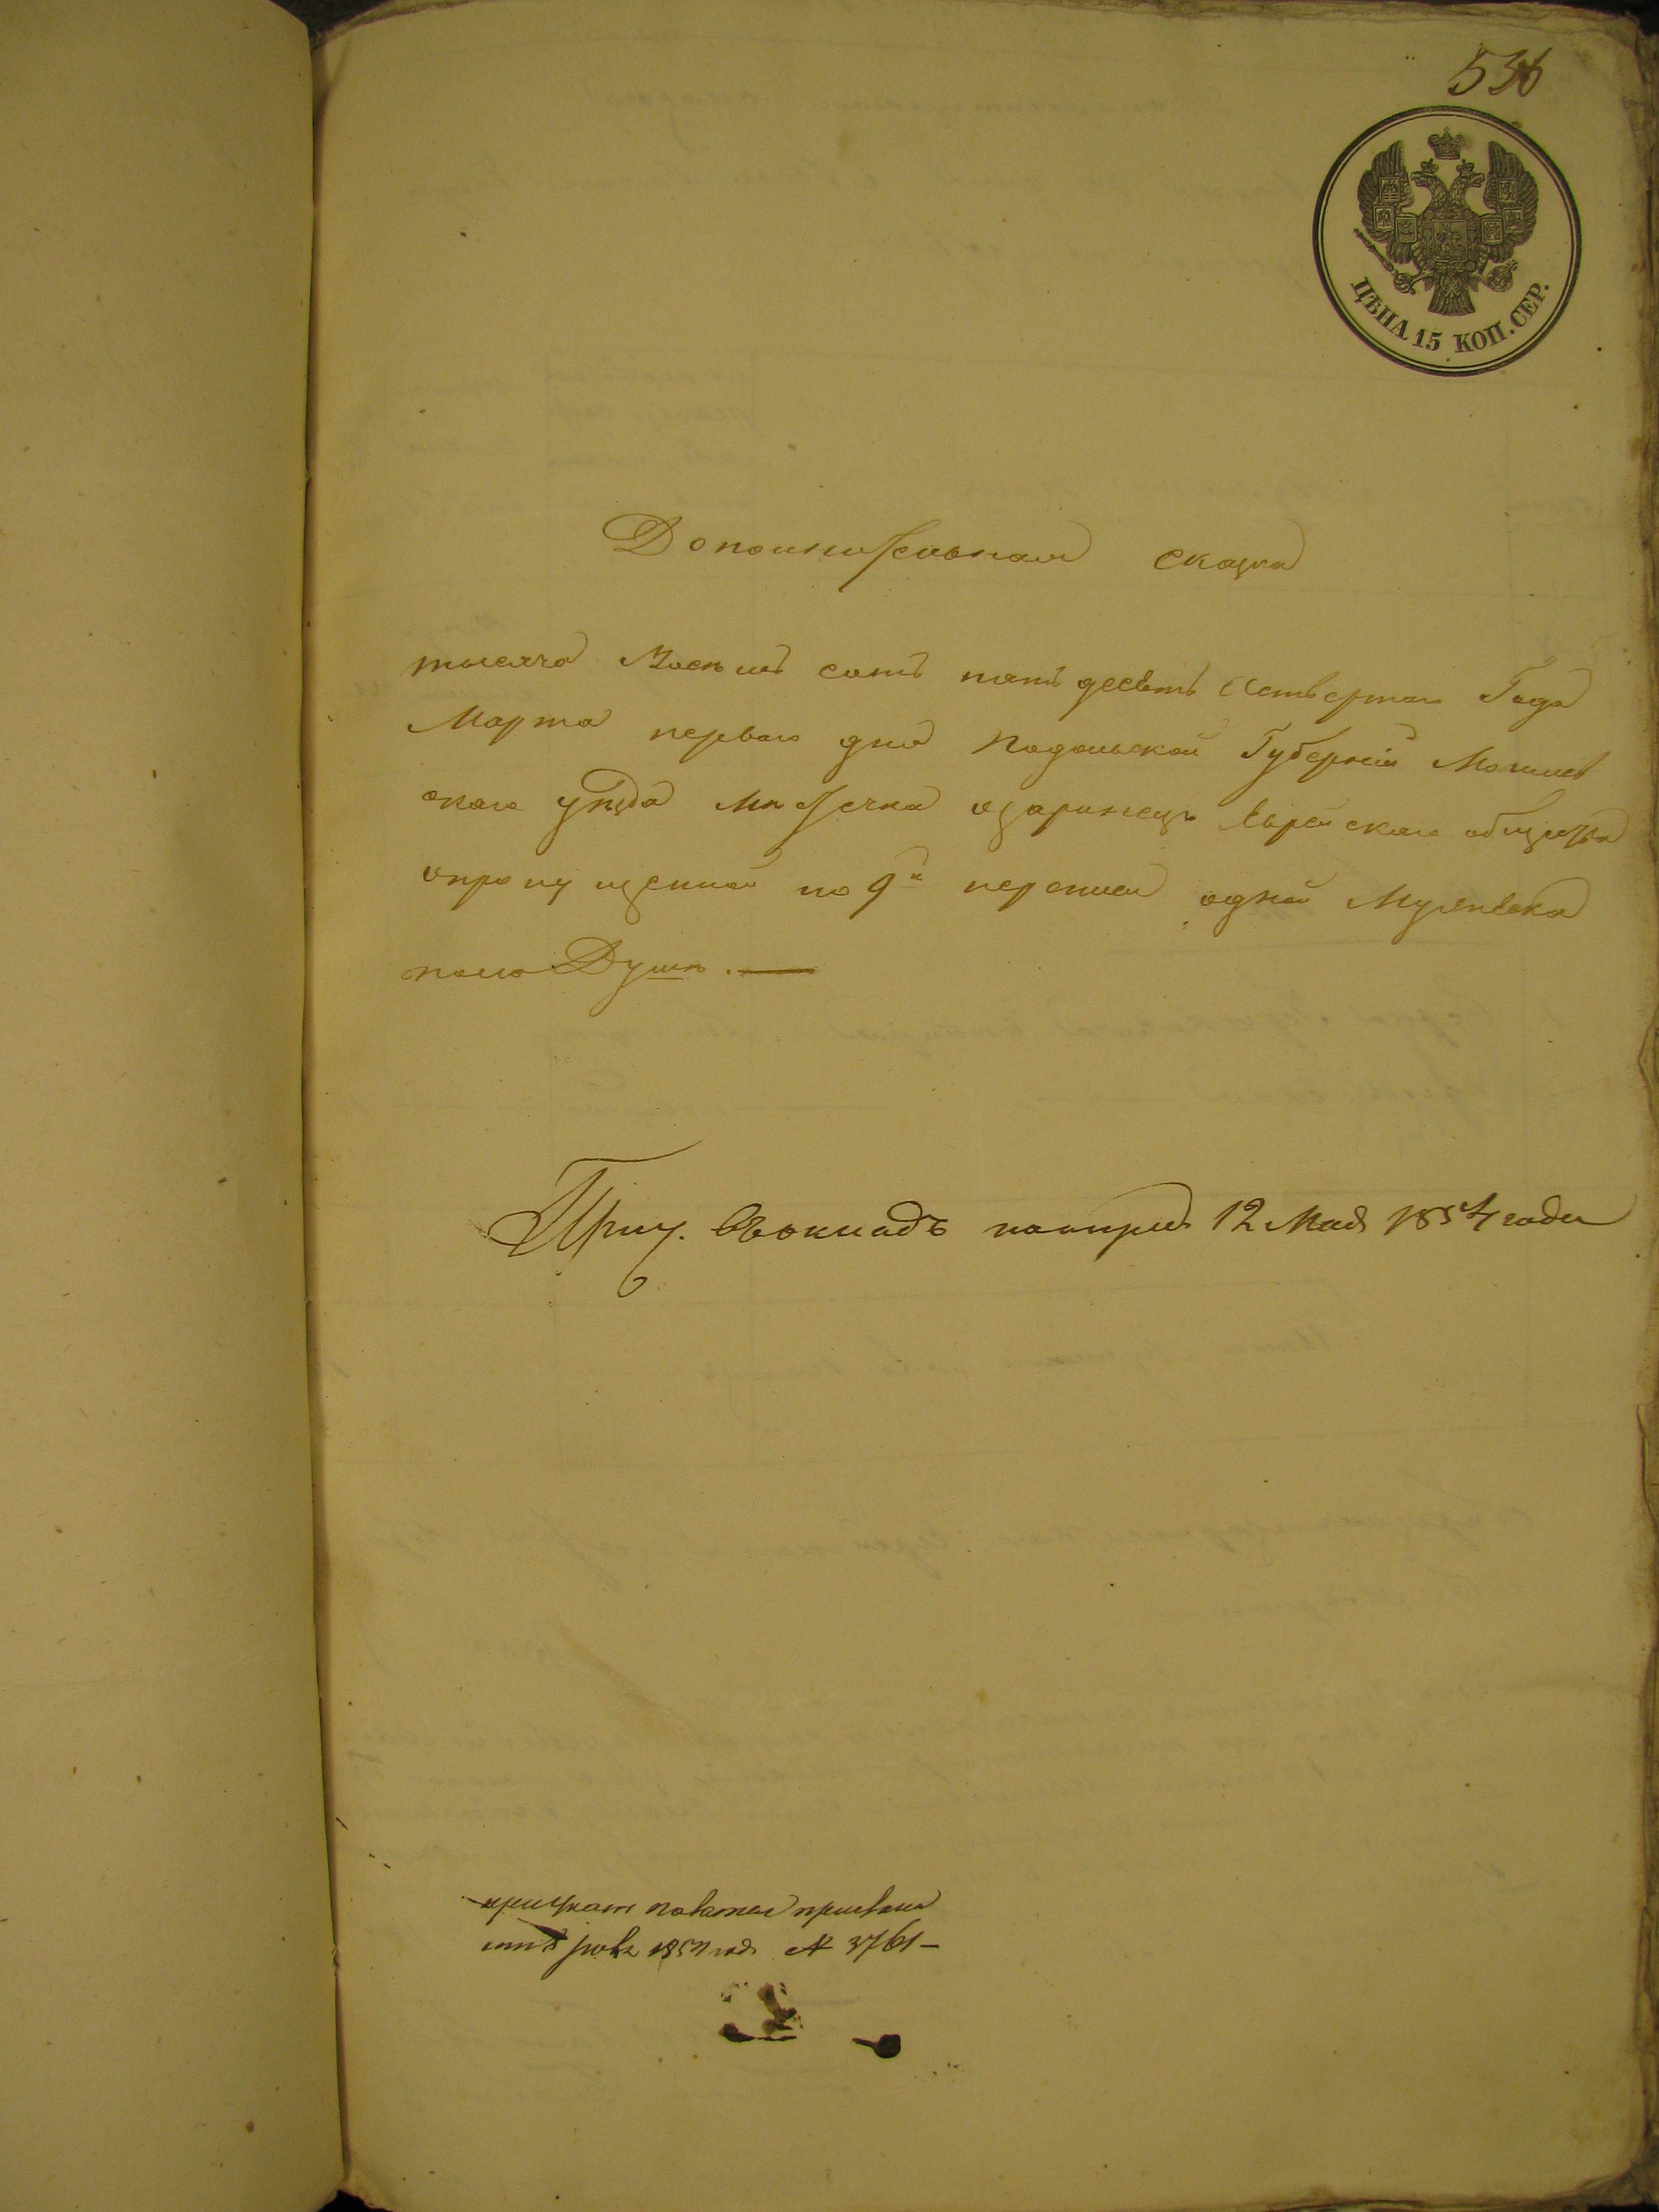 536
ЦѢНА 15 КОП. СЕР.
Дополнительная сказка
тысяча Восемь сотъ пятьдесятъ Четвертаго Года
Марта перваго дня Подольской Губерніи Могилев
скаго уѣзда мѣстечка Озаринецъ Еврейскаго общества
о пропущенной по 9й переписи одной Мужеска
пола Душѣ.
Прич. въ окладъ 12 Мая 1854 года
1854 года № 3761